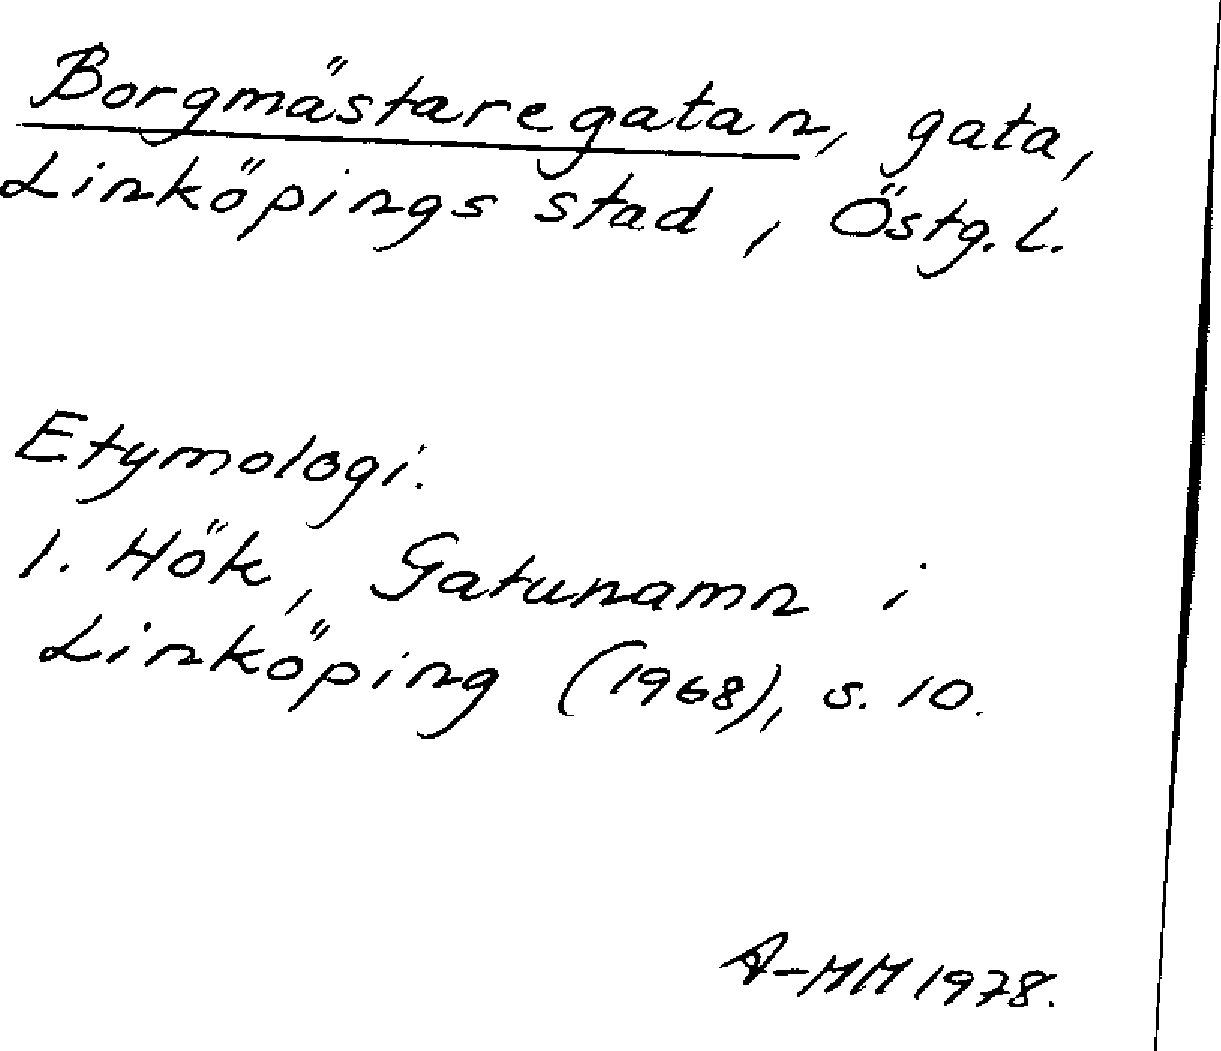 Borgmästaregatan, gata,
Linköpings stad, Östg. l.
Etymologi.
1. Hök, Gatunamn i
Linköping (1968), s. 10.
A-MM 1978.